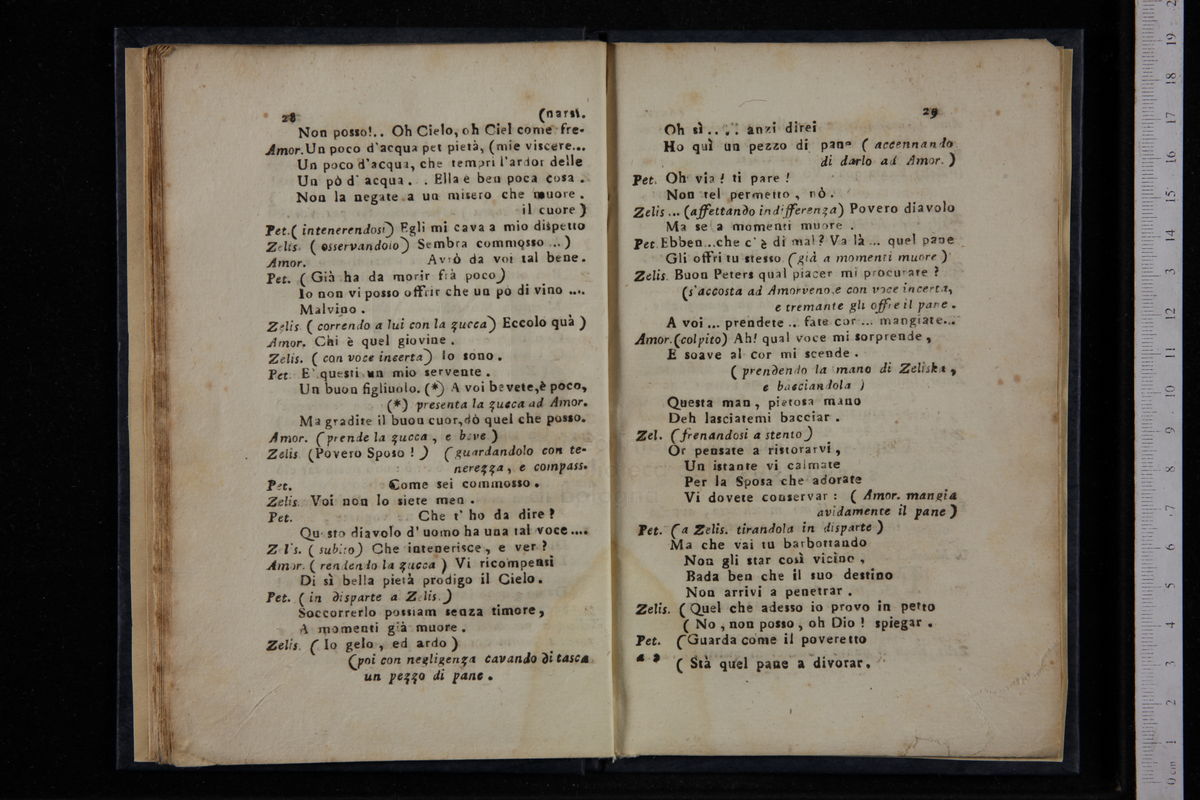 28 (narsi.
Non posso!.. Oh Cielo, oh Ciel come fre-
Amor.Un poco d'acqua pet pietà, (mie viscere...
Un poco d'acqua, che tempri l'ardor delle
Un pò d' acqua. . Ella è ben poca cosa .
Non la negate a un misero che muore .
il cuore)
Pet.( intenerendosi) Egli mi cava a mio dispetto
Zelis. ( osservandolo) Sembra commosso ... )
Amor. Avrò da voi tal bene.
Pet. ( Già ha da morir frà poco)
Io non vi posso offrir che un pò di vino ....
Malvino .
Zelis. ( correndo a lui con la zucca) Eccolo quà )
Amor. Chi è quel giovine .
Zelis. ( con voce incerta) Io sono .
Pet. E' questi un mio servente .
Un buon figliuolo. (*) A voi bevete,è poco,
(*) presenta la zucca ad Amor.
Ma gradite il buon cuor,dò quel che posso.
Amor. (prende la zucca , e beve )
Zelis. (Povero Sposo ! ) (guardandolo con te-
nerezza , e compass.
Pet. Come sei commosso .
Zelis. Voi non lo siete men .
Pet. Che t' ho da dire ?
Questo diavolo d' uomo ha una tal voce ....
Zelis. ( subito) Che intenerisce , e ver ?
Amor. ( rendendo la zucca ) Vi ricompensi
Di sì bella pietà prodigo il Cielo .
Pet. ( in disparte a Zelis.)
Soccorrerlo possiam senza timore ,
A momenti già muore .
Zelis. ( Io gelo , ed ardo )
(poi con negligenza cavando di tasca
un pezzo di pane .
29
Oh sì .. .. anzi direi
Ho quì un pezzo di pane ( accennando
di darlo ad Amor. )
Pet. Oh via ! ti pare !
Non tel permetto , nò .
Zelis ... (affettando indifferenza) Povero diavolo
Ma se a momenti muore .
Pet.Ebben...che c' è di mal ? Va là ... quel pane
Gli offri tu stesso (già a momenti muore )
Zelis. Buon Peters qual piacer mi procurate ?
(s'accosta ad Amorveno,e con voce incerta,
e tremante gli offre il pane .
A voi ... prendete .. fate cor ... mangiate...
Amor.(colpito) Ah! qual voce mi sorprende ,
E soave al cor mi scende .
( prendendo la mano di Zeliska ,
e bacciandola )
Questa man , pietosa mano
Deh lasciatemi bacciar .
Zel. (frenandosi a stento)
Or pensate a ristorarvi ,
Un istante vi calmate
Per la Sposa che adorate
Vi dovete conservar : ( Amor. mangia
avidamente il pane )
Pet. (a Zelis. tirandola in disparte )
Ma che vai tu barbottando
Non gli star così vicino ,
Bada ben che il suo destino
Non arrivi a penetrar .
Zelis. ( Quel che adesso io provo in petto
( No , non posso , oh Dio ! spiegar .
Pet. (Guarda come il poveretto
a 3 ( Stà quel pane a divorar .